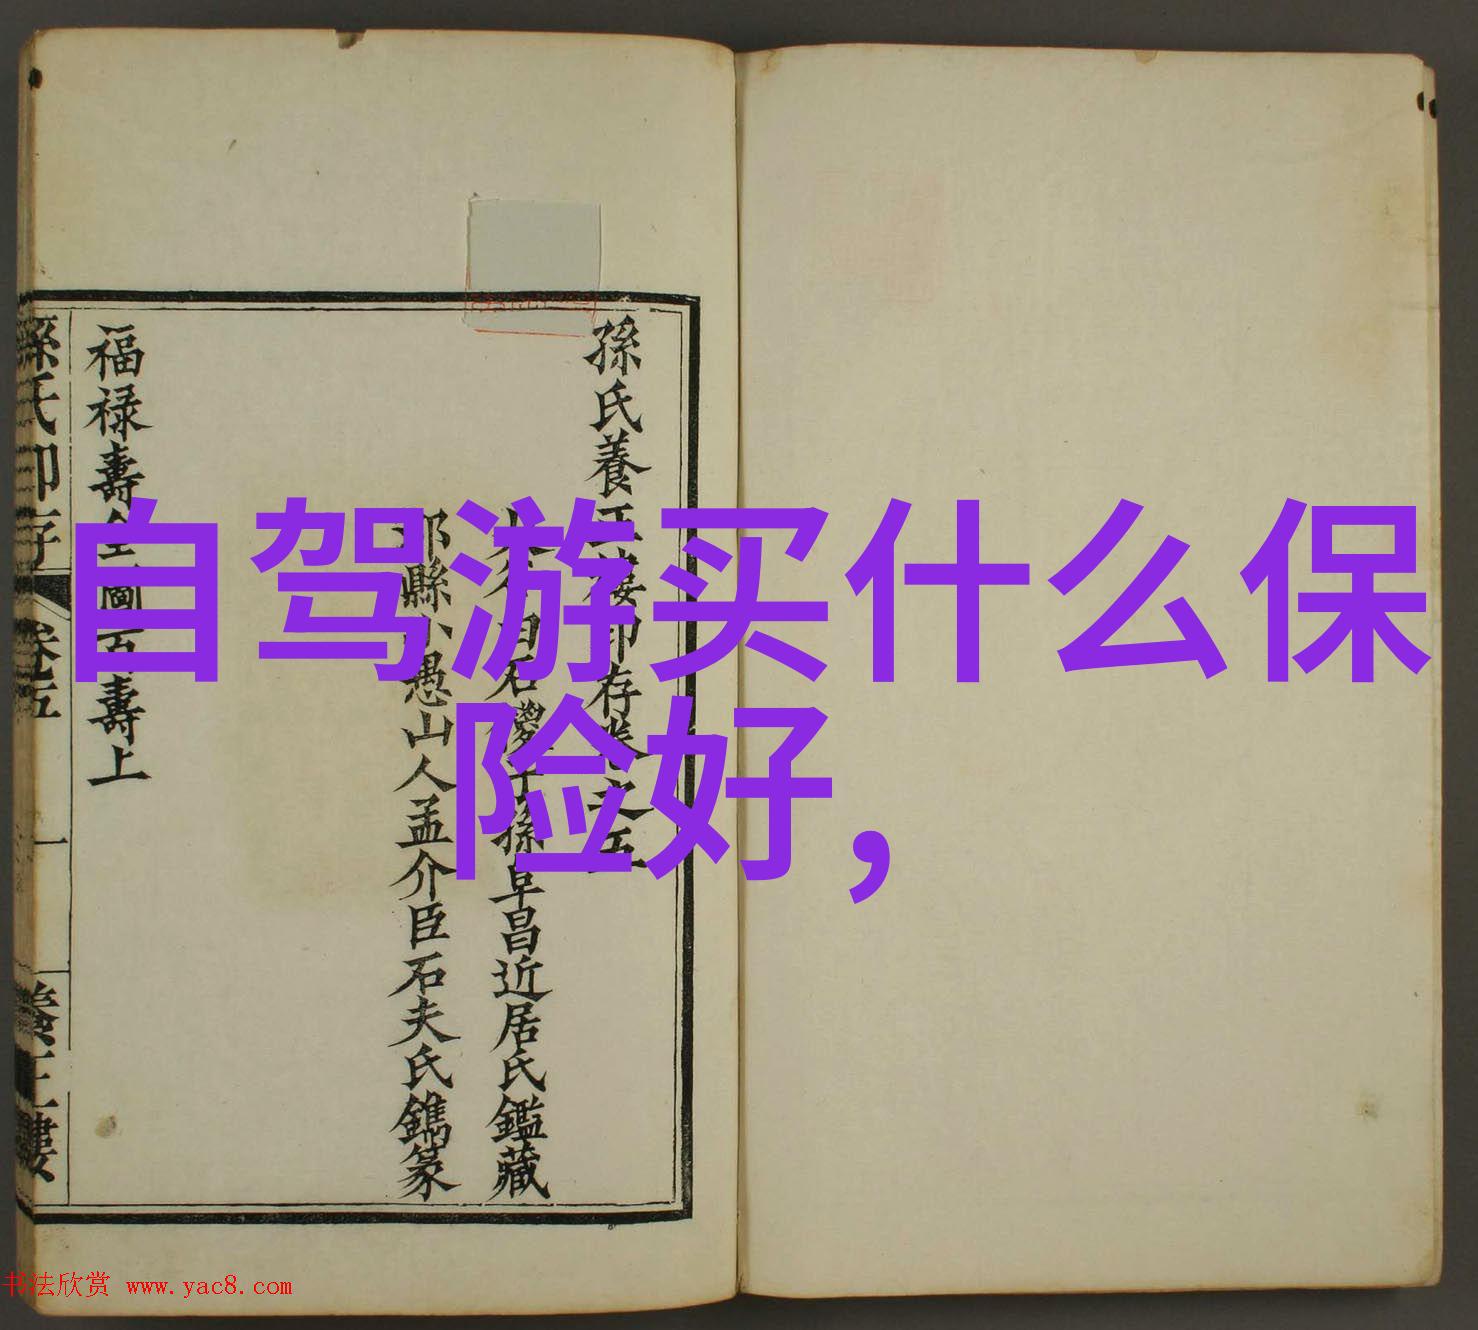 自驾游买什么保
险好，
孫氏養正樓印存卷之五
孫阜昌近居氏鑑藏
縣小愚山人孟介臣石夫氏鐫篆
福禄壽全圖百壽上
孫氏印存
卷五
一
養正樓
书法欣赏 www.yac8.com